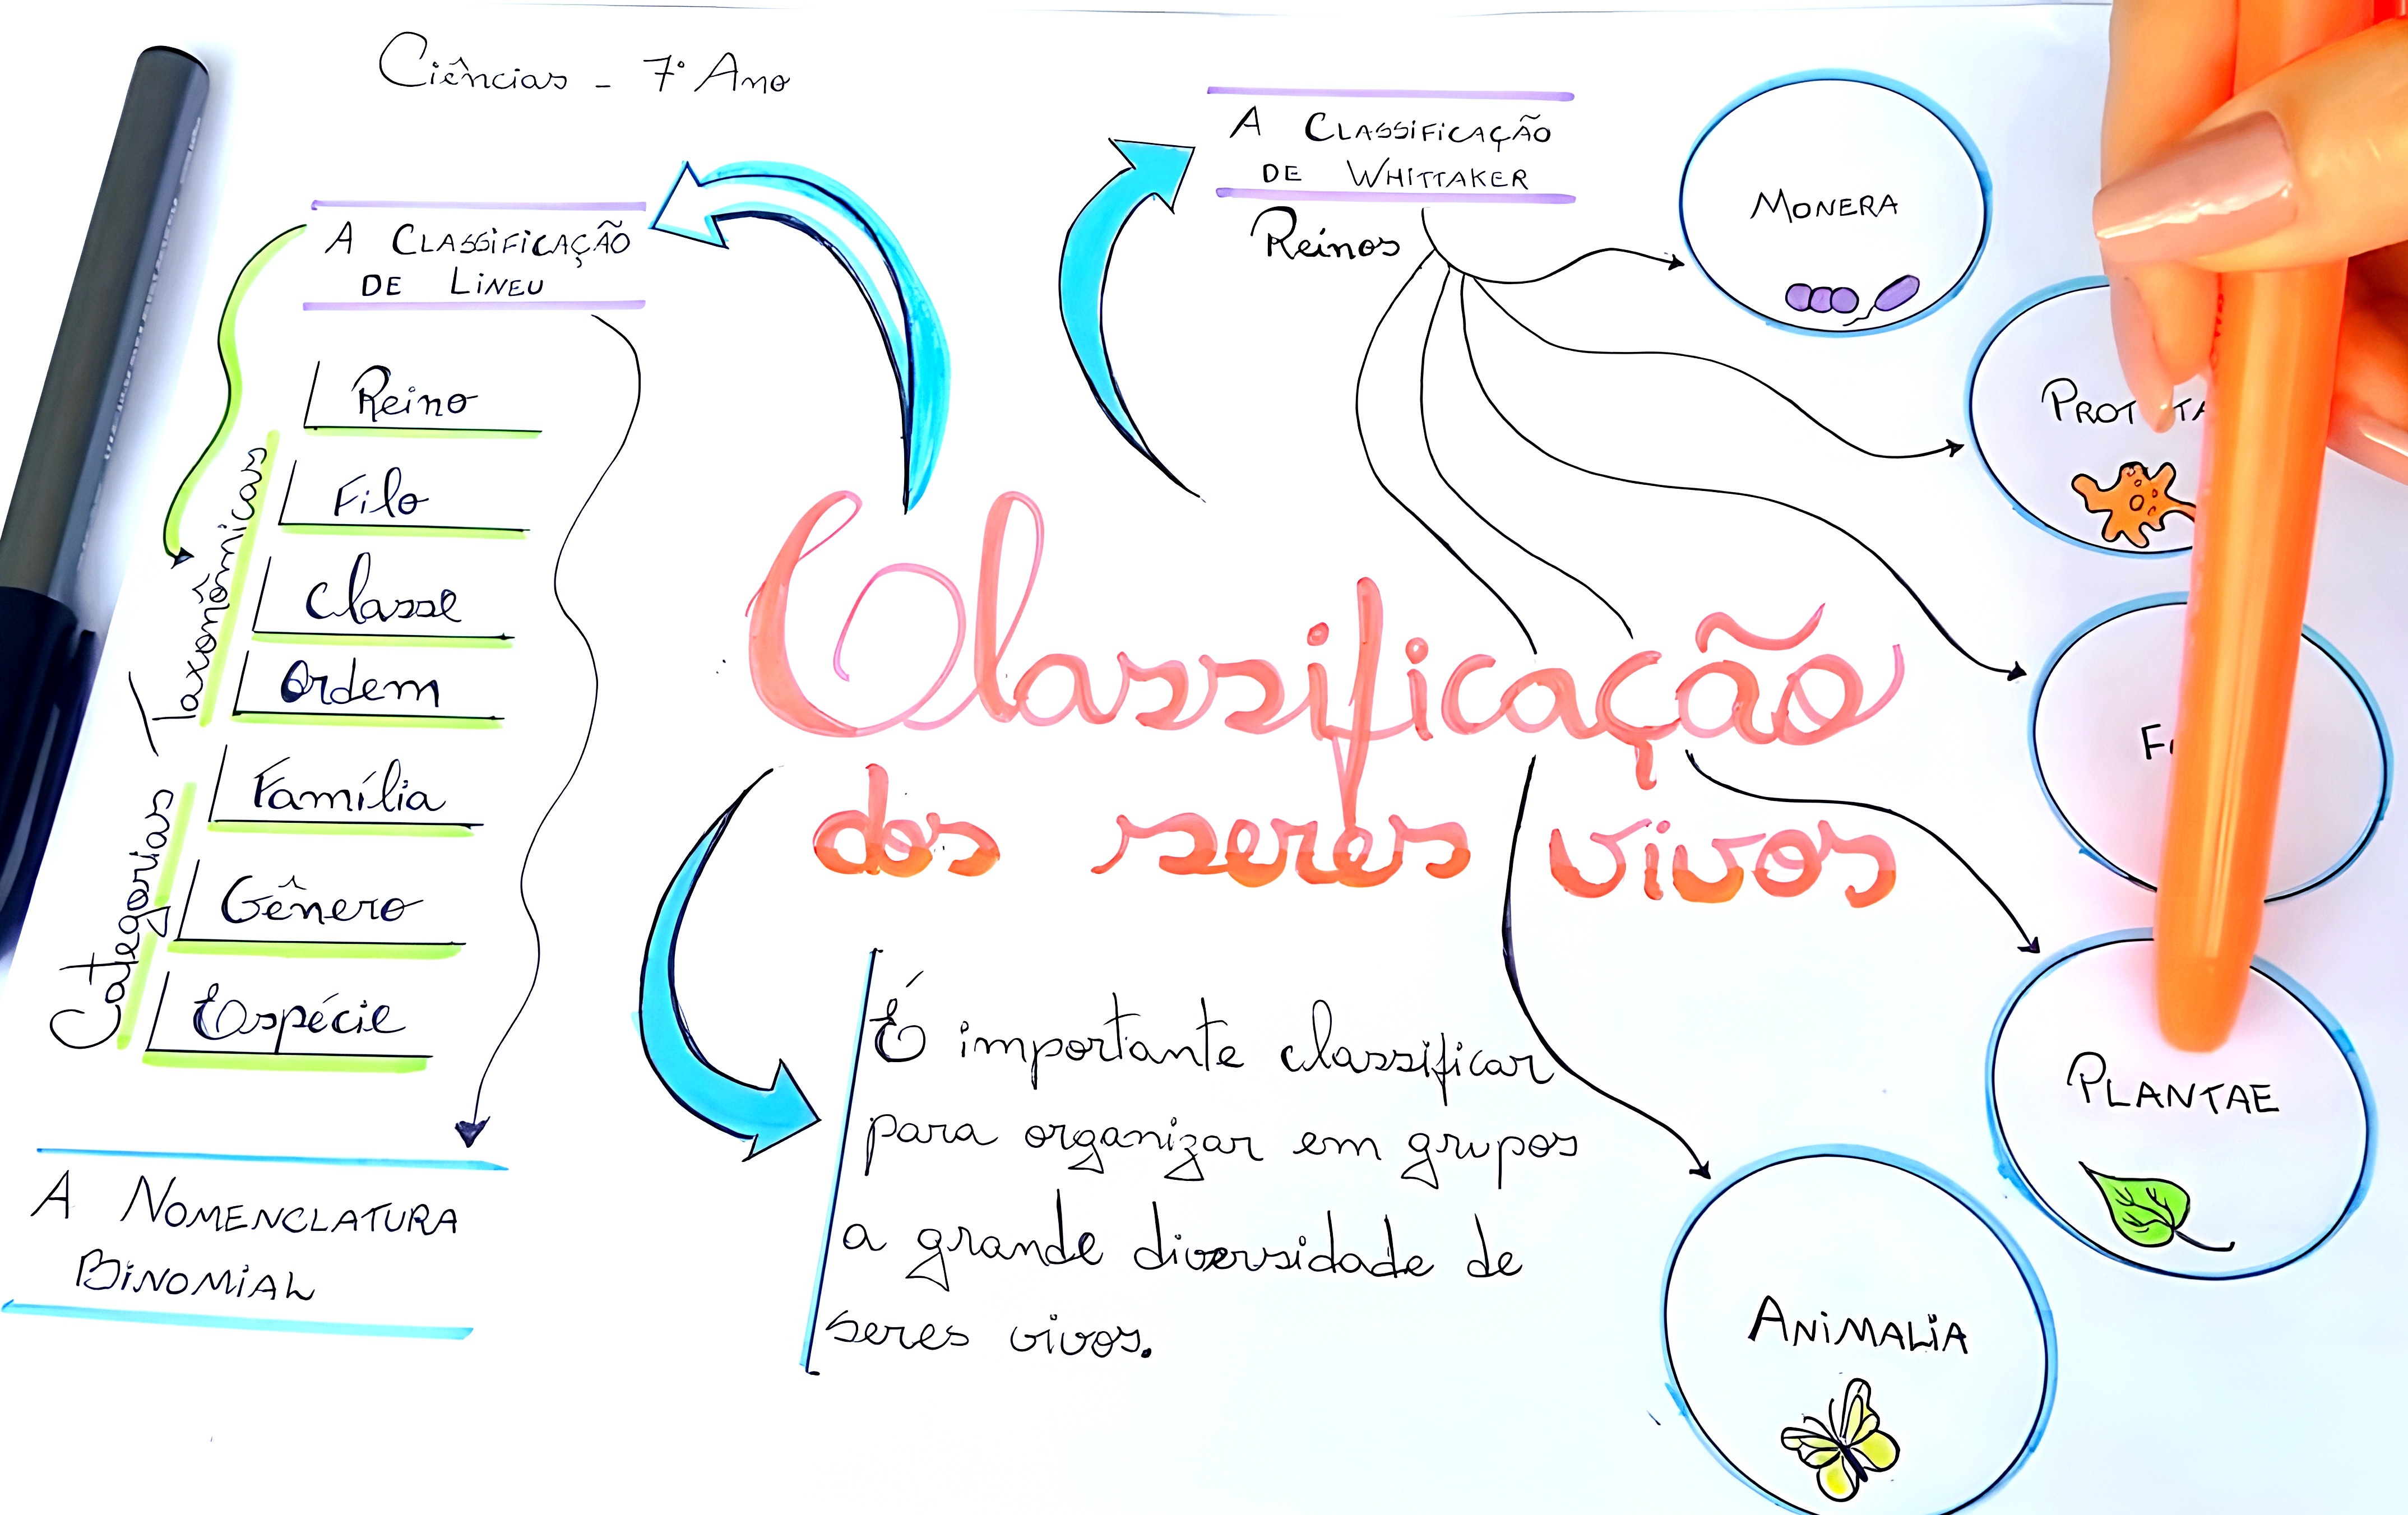 Ciências - 7º Ano
A CLASSIFICAÇÃO
DE LINEU
Reino
Filo
Classe
Ordem
Família
Gênero
Espécie
Categorias Taxonômicas
A NOMENCLATURA
BINOMIAL
A CLASSIFICAÇÃO
DE WHITTAKER
Reinos
MONERA
PLANTAE
ANIMALIA
Classificação
dos seres vivos
É importante classificar
para organizar em grupos
a grande diversidade de
seres vivos.